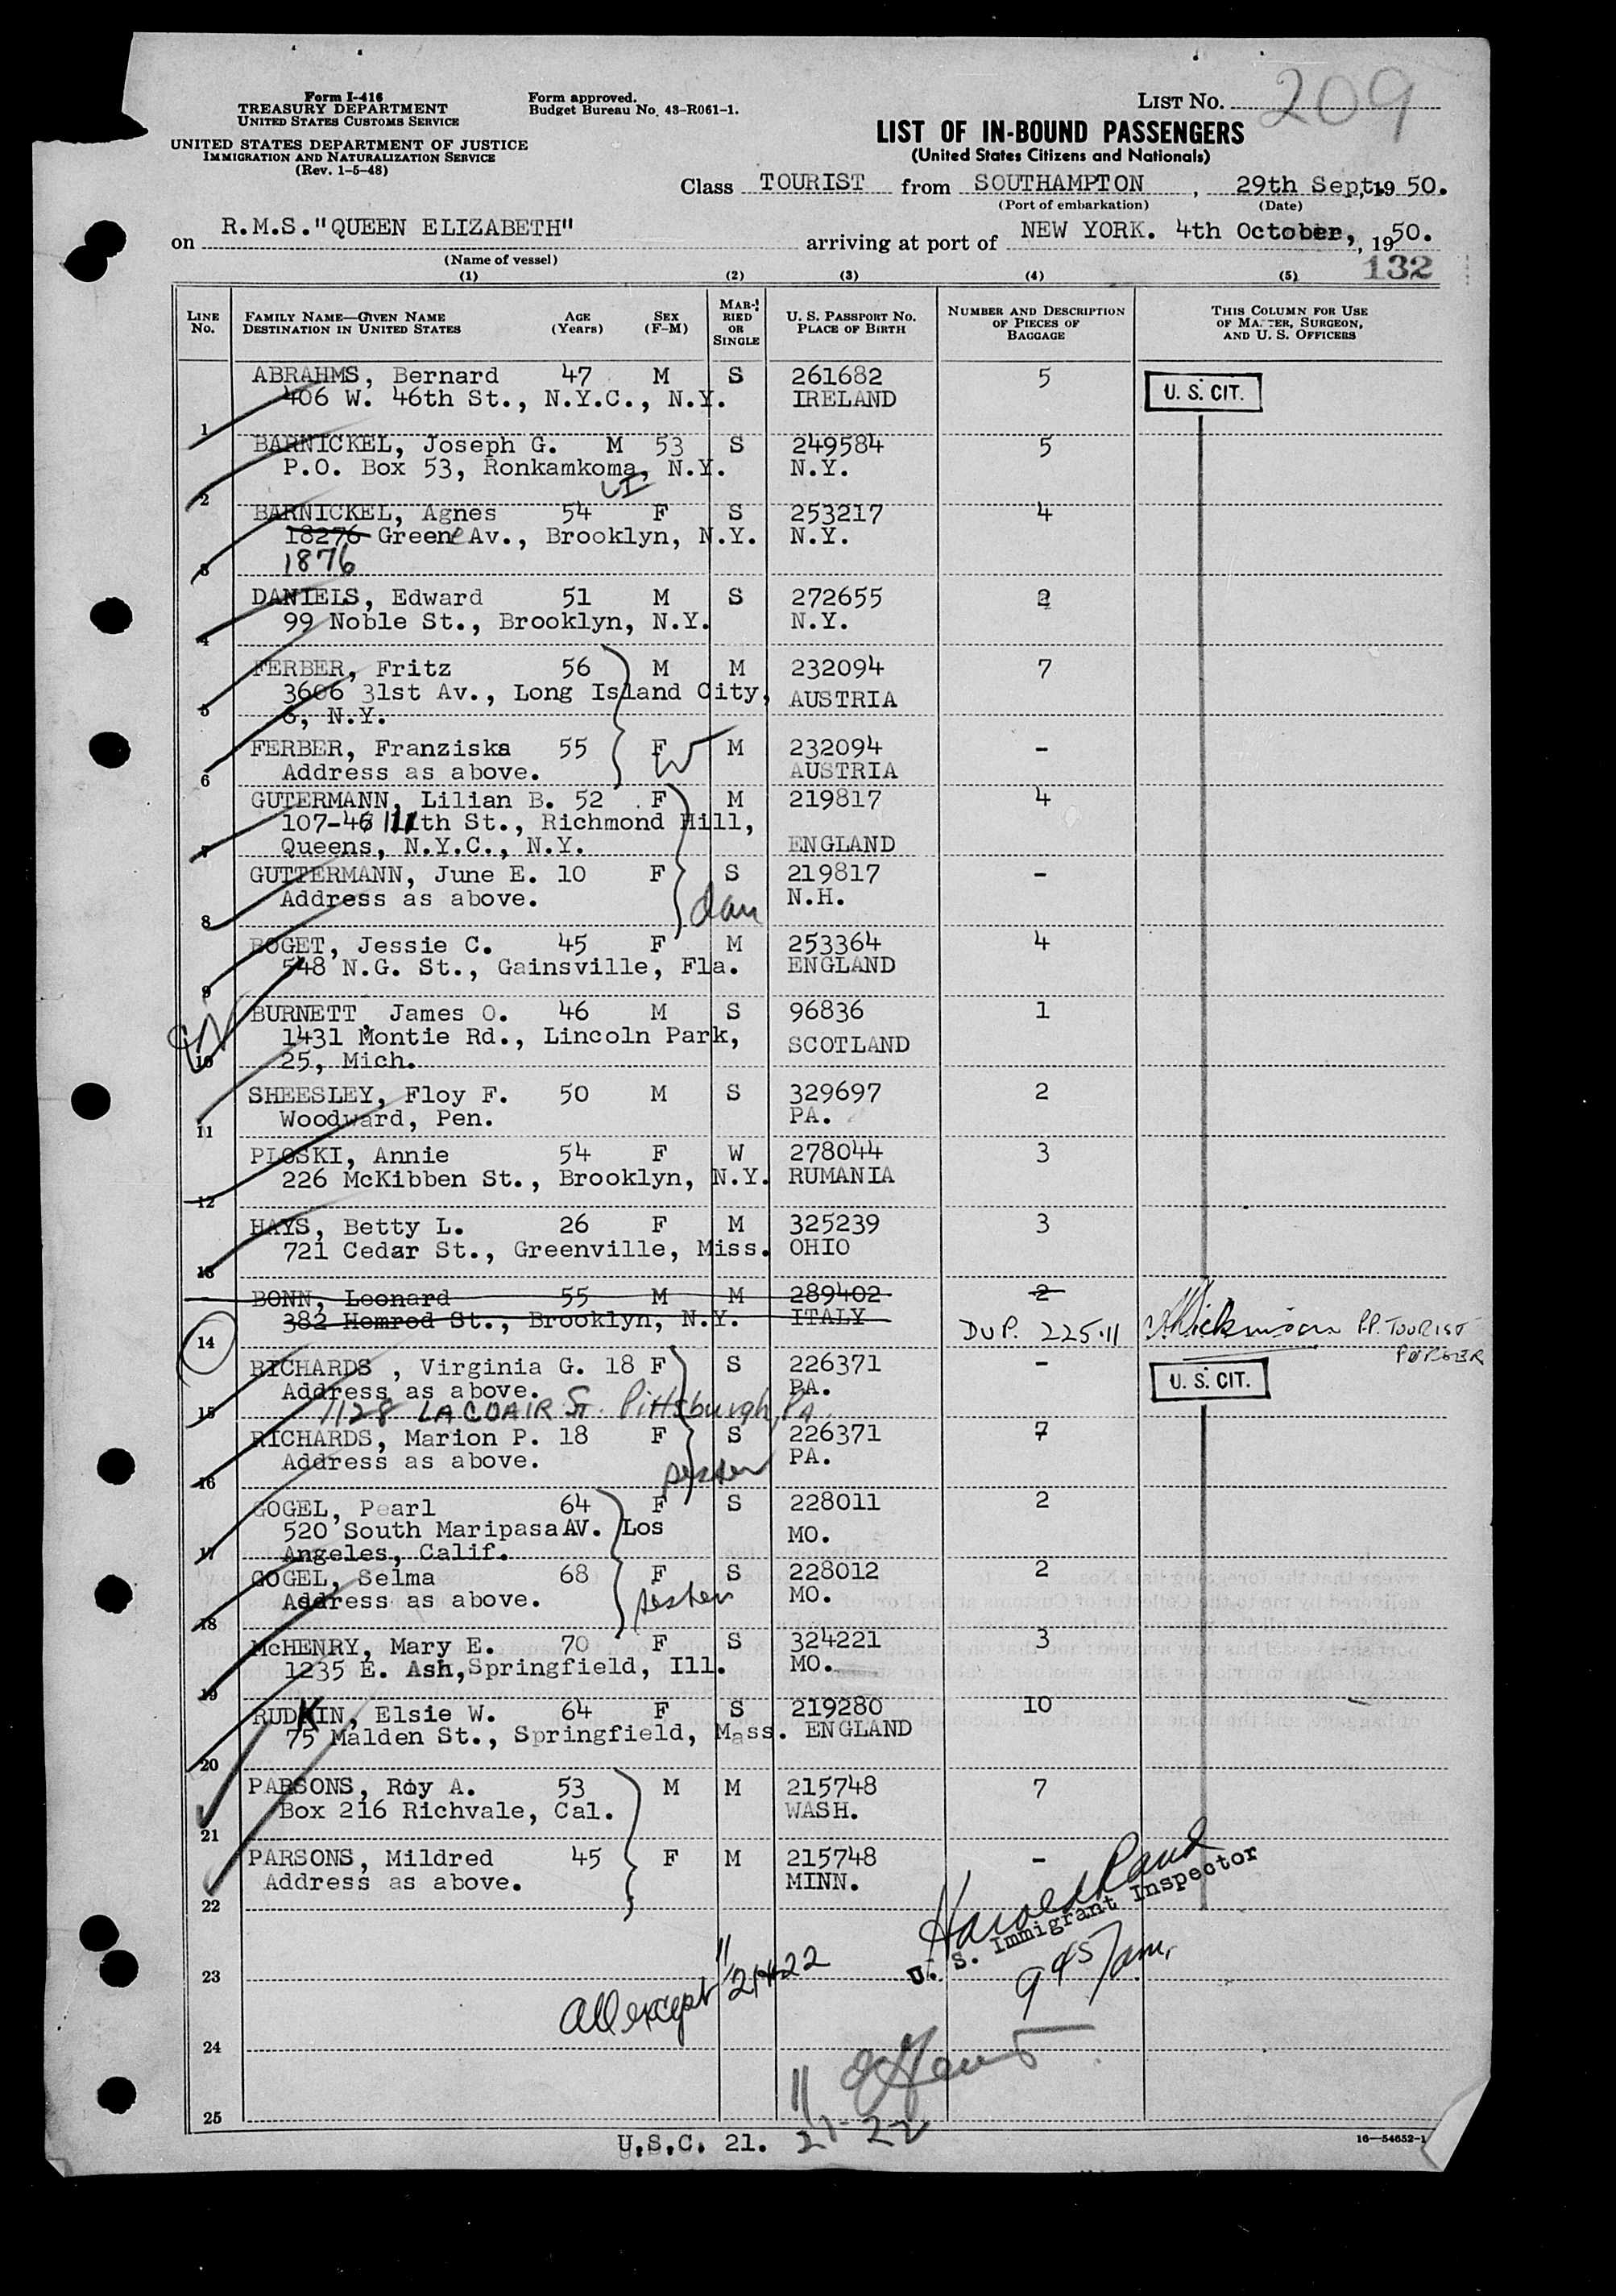 Form I-416
TREASURY DEPARTMENT
UNITED STATES CUSTOMS SERVICE
UNITED STATES DEPARTMENT OF JUSTICE
IMMIGRATION AND NATURALIZATION SERVICE
(Rev. 1-5-48)
Form approved.
Budget Bureau No. 43-R061-1.
LIST NO. 209
LIST OF IN-BOUND PASSENGERS
(United States Citizens and Nationals)
Class TOURIST from SOUTHAMPTON, 29th Sept., 19 50.
(Port of embarkation) (Date)
on R.M.S."QUEEN ELIZABETH" arriving at port of NEW YORK. 4th October, 19 50.
(Name of vessel)
132
(1) (2) (3) (4) (5)
LINE NO. FAMILY NAME—GIVEN NAME DESTINATION IN UNITED STATES AGE (Years) SEX (F-M) MARRIED OR SINGLE U. S. PASSPORT NO. PLACE OF BIRTH NUMBER AND DESCRIPTION OF PIECES OF BAGGAGE THIS COLUMN FOR USE OF MASTER, SURGEON, AND U. S. OFFICERS
ABRAHMS, Bernard 47 M S 261682 5 U. S. CIT.
1 406 W. 46th St., N.Y.C., N.Y. IRELAND
BARNICKEL, Joseph G. M 53 S 249584 5
2 P.O. Box 53, Ronkamkoma, N.Y. N.Y.
LI
BARNICKEL, Agnes 54 F S 253217 4
3 18276 Greene Av., Brooklyn, N.Y. N.Y.
1876
DANIELS, Edward 51 M S 272655 2
4 99 Noble St., Brooklyn, N.Y. N.Y.
FERBER, Fritz 56 M M 232094 7
5 3606 31st Av., Long Island City, AUSTRIA
6, N.Y.
FERBER, Franziska 55 F W M 232094 -
6 Address as above. AUSTRIA
GUTERMANN, Lilian B. 52 F M 219817 4
107-46 111th St., Richmond Hill,
7 Queens, N.Y.C., N.Y. ENGLAND
GUTTERMANN, June E. 10 F S 219817 -
8 Address as above. dau N.H.
BOGET, Jessie C. 45 F M 253364 4
9 548 N.G. St., Gainsville, Fla. ENGLAND
BURNETT, James O. 46 M S 96836 1
1431 Montie Rd., Lincoln Park, SCOTLAND
10 25, Mich.
SHEESLEY, Floy F. 50 M S 329697 2
11 Woodward, Pen. PA.
PLOSKI, Annie 54 F W 278044 3
12 226 McKibben St., Brooklyn, N.Y. RUMANIA
HAYS, Betty L. 26 F M 325239 3
13 721 Cedar St., Greenville, Miss. OHIO
BONN, Leonard 55 M M 289402 2
14 382 Homrod St., Brooklyn, N.Y. ITALY DUP. 225.11 Dickinson P.P. TOURIST PURSER
RICHARDS, Virginia G. 18 F S 226371 - U. S. CIT.
Address as above. PA.
15 1128 LACOAIR ST. Pittsburgh, PA
RICHARDS, Marion P. 18 F S 226371 7
16 Address as above. sister PA.
GOGEL, Pearl 64 F S 228011 2
520 South Maripasa AV. Los MO.
17 Angeles, Calif.
GOGEL, Selma 68 F S 228012 2
18 Address as above. sister MO.
McHENRY, Mary E. 70 F S 324221 3
19 1235 E. Ash, Springfield, Ill. MO.
RUDKIN, Elsie W. 64 F S 219280 10
20 75 Malden St., Springfield, Mass. ENGLAND
PARSONS, Roy A. 53 M M 215748 7
21 Box 216 Richvale, Cal. WASH.
PARSONS, Mildred 45 F M 215748 -
22 Address as above. MINN.
Harold Rand
U. S. Immigrant Inspector
9 45/am.
23
All except 11/21+22
24
11
25
21-22
U.S.C. 21.
16—54652-1